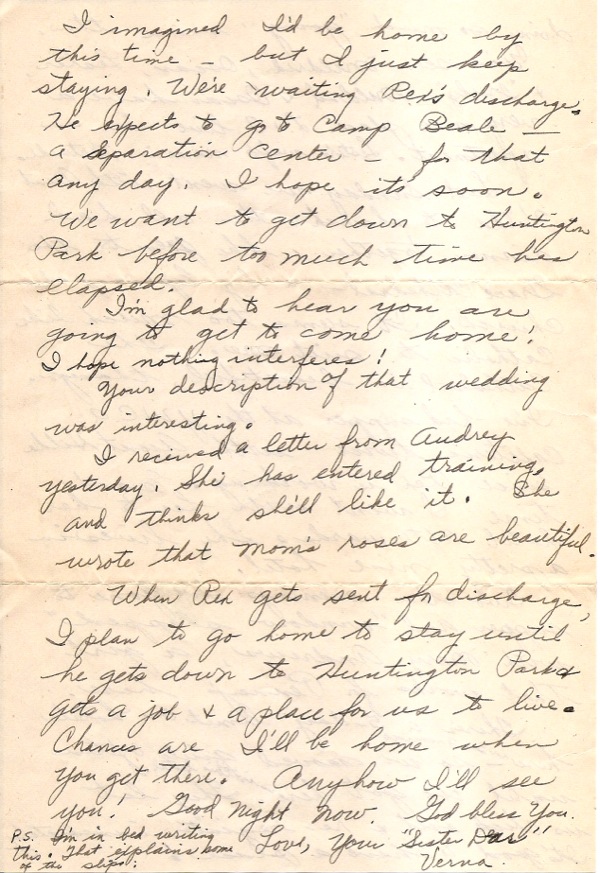 I imagined I'd be home by
this time – but I just keep
staying. We're waiting Rex's discharge.
He expects to go to Camp Beale –
a separation center – for that
any day. I hope it's soon.
We want to get down to Huntington
Park before too much time has
elapsed.
I'm glad to hear you are
going to get to come home!
I hope nothing interferes!
Your description of that wedding
was interesting.
I received a letter from Audrey
yesterday. She has entered training,
and thinks she'll like it. She
wrote that Mom's roses are beautiful.
When Rex gets sent for discharge,
I plan to go home to stay until
he gets down to Huntington Park &
gets a job & a place for us to live.
Chances are I'll be home when
you get there. Anyhow I'll see
you! Good Night now. God bless you.
Love, Your "Sister Dear"
Verna.
P.S. I'm in bed writing
this. That explains some
of the slips.